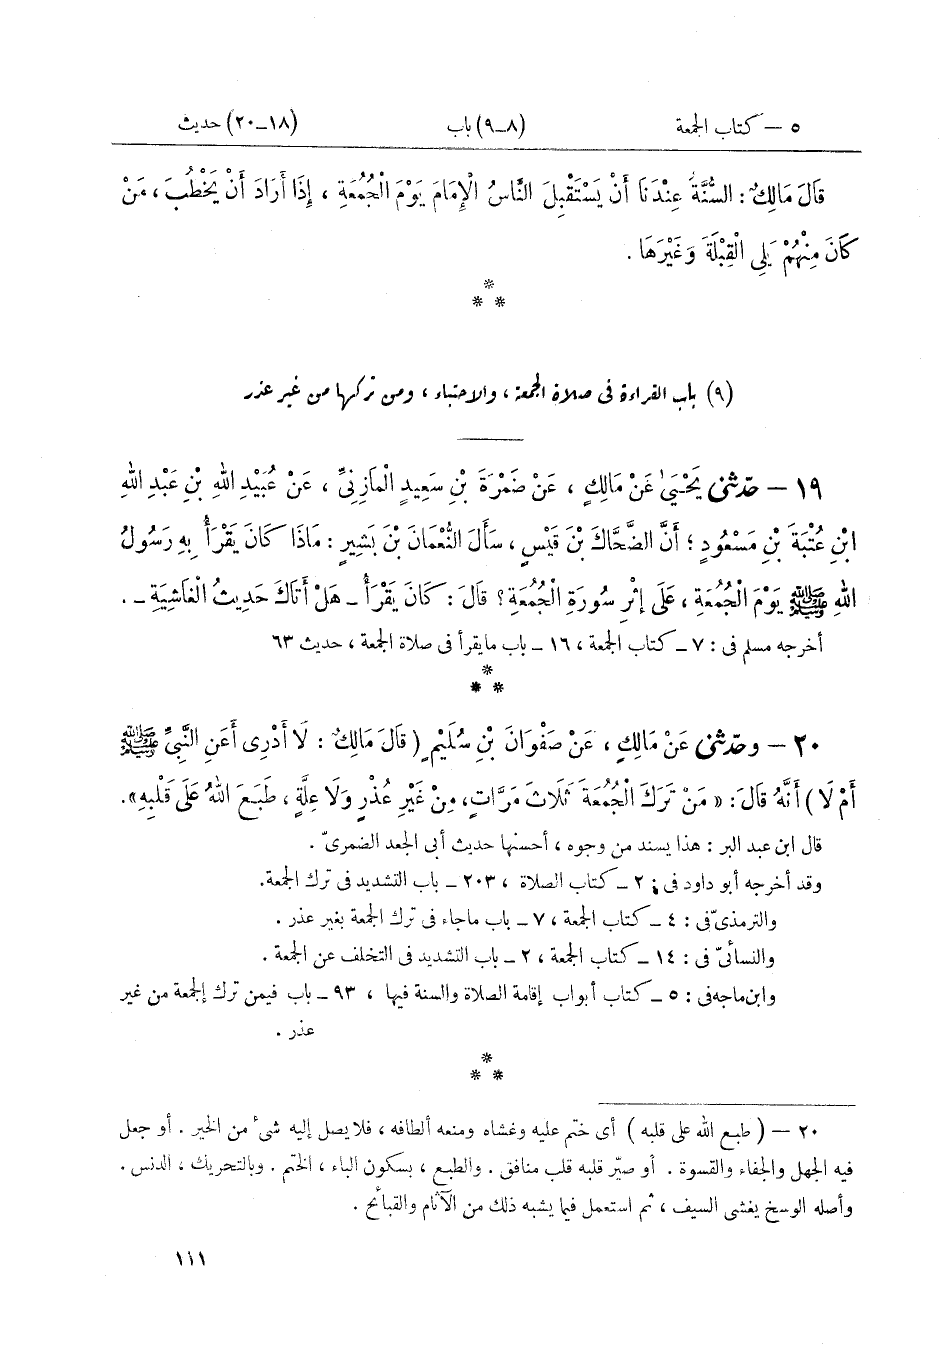 ٥ – كتاب الجمعة (٨–٩) باب (١٨–٢٠) حديث
قَالَ مَالِكٌ : السُّنَّةُ عِنْدَنَا أَنْ يَسْتَقْبِلَ النَّاسُ الْإِمَامَ يَوْمَ الْجُمُعَةِ ، إِذَا أَرَادَ أَنْ يَخْطُبَ ، مَنْ
كَانَ مِنْهُمْ يَلِي الْقِبْلَةَ وَغَيْرَهَا .
*
* *
(٩) باب القراءة فى صلاة الجمعة ، والاحتباء ، ومن تركها من غير عذر
١٩ – حدّثنى يَحْيَىٰ عَنْ مَالِكٍ ، عَنْ ضَمْرَةَ بْنِ سَعِيدٍ الْمَازِنِيِّ ، عَنْ عُبَيْدِ اللهِ بْنِ عَبْدِ اللهِ
ابْنِ عُتْبَةَ بْنِ مَسْعُودٍ ؛ أَنَّ الضَّحَّاكَ بْنَ قَيْسٍ ، سَأَلَ النُّعْمَانَ بْنَ بَشِيرٍ : مَاذَا كَانَ يَقْرَأُ بِهِ رَسُولُ
اللهِ ﷺ يَوْمَ الْجُمُعَةِ ، عَلَى إِثْرِ سُورَةِ الْجُمُعَةِ ؟ قَالَ : كَانَ يَقْرَأُ – هَلْ أَتَاكَ حَدِيثُ الْغَاشِيَةِ – .
أخرجه مسلم فى : ٧ – كتاب الجمعة ، ١٦ – باب مايقرأ فى صلاة الجمعة ، حديث ٦٣
*
* *
٢٠ – وحدّثنى عَنْ مَالِكٍ ، عَنْ صَفْوَانَ بْنِ سُلَيْمٍ ( قَالَ مَالِكٌ : لَا أَدْرِى أَعَنِ النَّبِيِّ ﷺ
أَمْ لَا ) أَنَّهُ قَالَ : « مَنْ تَرَكَ الْجُمُعَةَ ثَلَاثَ مَرَّاتٍ، مِنْ غَيْرِ عُذْرٍ وَلَا عِلَّةٍ ، طَبَعَ اللهُ عَلَى قَلْبِهِ ».
قال ابن عبد البر : هذا يسند من وجوه ، أحسنها حديث أبى الجعد الضمرىّ .
وقد أخرجه أبو داود فى : ٢ – كتاب الصلاة ، ٢٠٣ – باب التشديد فى ترك الجمعة.
والترمذىّ فى : ٤ – كتاب الجمعة ، ٧ – باب ماجاء فى ترك الجمعة بغير عذر .
والنسائىّ فى : ١٤ – كتاب الجمعة ، ٢ – باب التشديد فى التخلف عن الجمعة .
وابن ماجه فى : ٥ – كتاب أبواب إقامة الصلاة والسنة فيها ، ٩٣ – باب فيمن ترك الجمعة من غير
عذر .
*
* *
٢٠ – ( طبع الله على قلبه ) أى ختم عليه وغشاه ومنعه ألطافه ، فلا يصل إليه شىء من الخير . أو جعل
فيه الجهل والجفاء والقسوة . أو صيّر قلبه قلب منافق . والطبع ، بسكون الباء ، الختم . وبالتحريك ، الدنس .
وأصله الوسخ يغشى السيف ، ثم استعمل فيما يشبه ذلك من الآثام والقبائح .
١١١